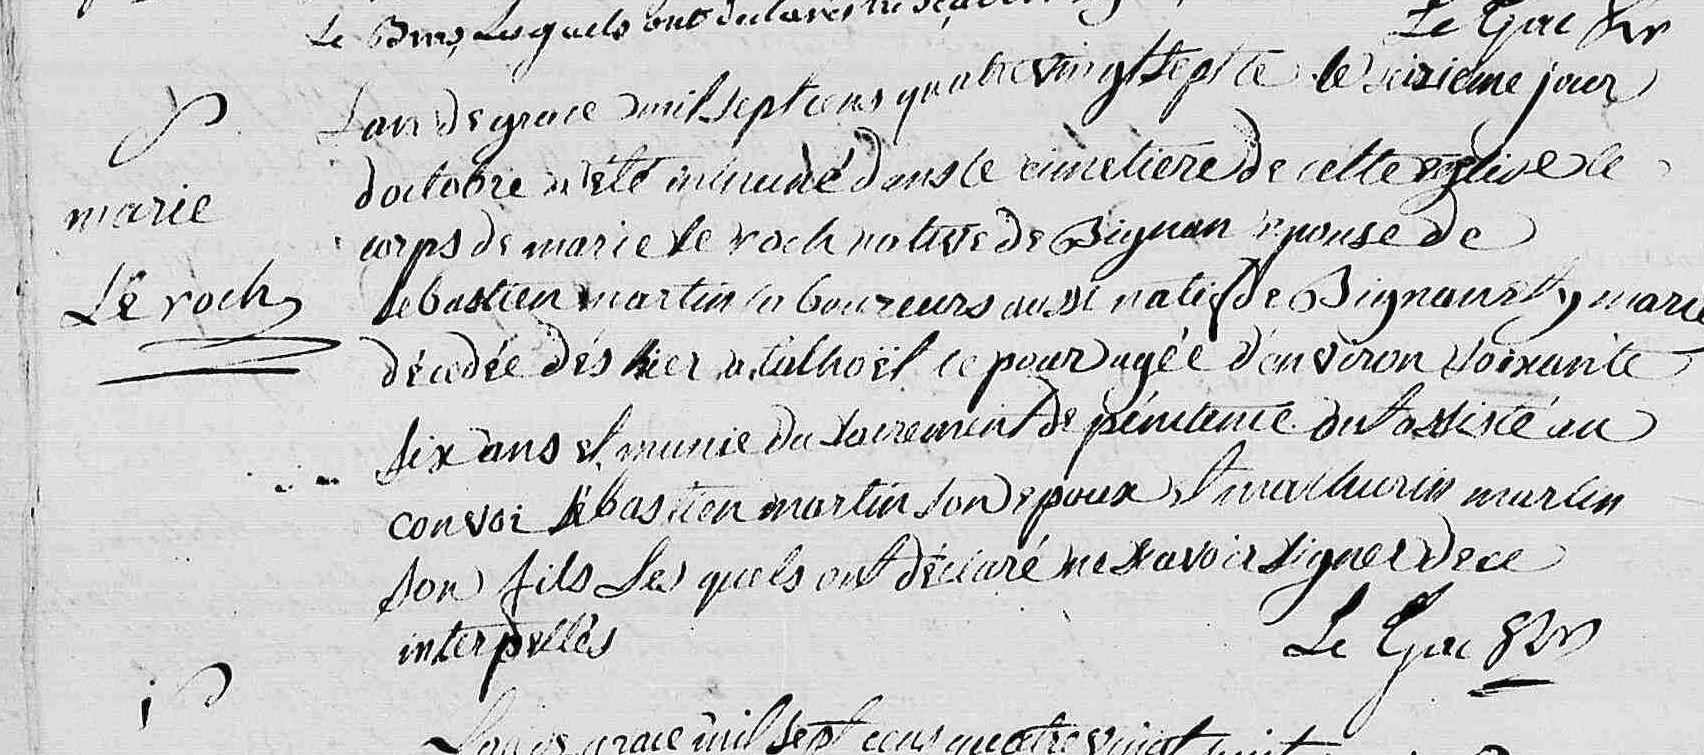 Le Bras, Lesquels ont declarés ne sçavoir
Le Gac
L'an de grace mil sept cens quatrevingt sept le seizieme jour
d'octobre a eté inhumé dans le cimetiere de cette eglise le
corps de marie le roch native de Bignan epouse de
sebastien martin laboureurs aussi natif de Bignan et y marié
décedée dés hier a talhoët ce jour agée d'environ soixante
six ans et munie du sacrement de pénitence. ont assisté au
convoi sébastien martin son epoux et mathurin martin
son fils Les quels ont déclaré ne scavoir signer de ce
interpellés
Le Gac
marie
Le roch
L'an de grace mil sept cens quatrevingt